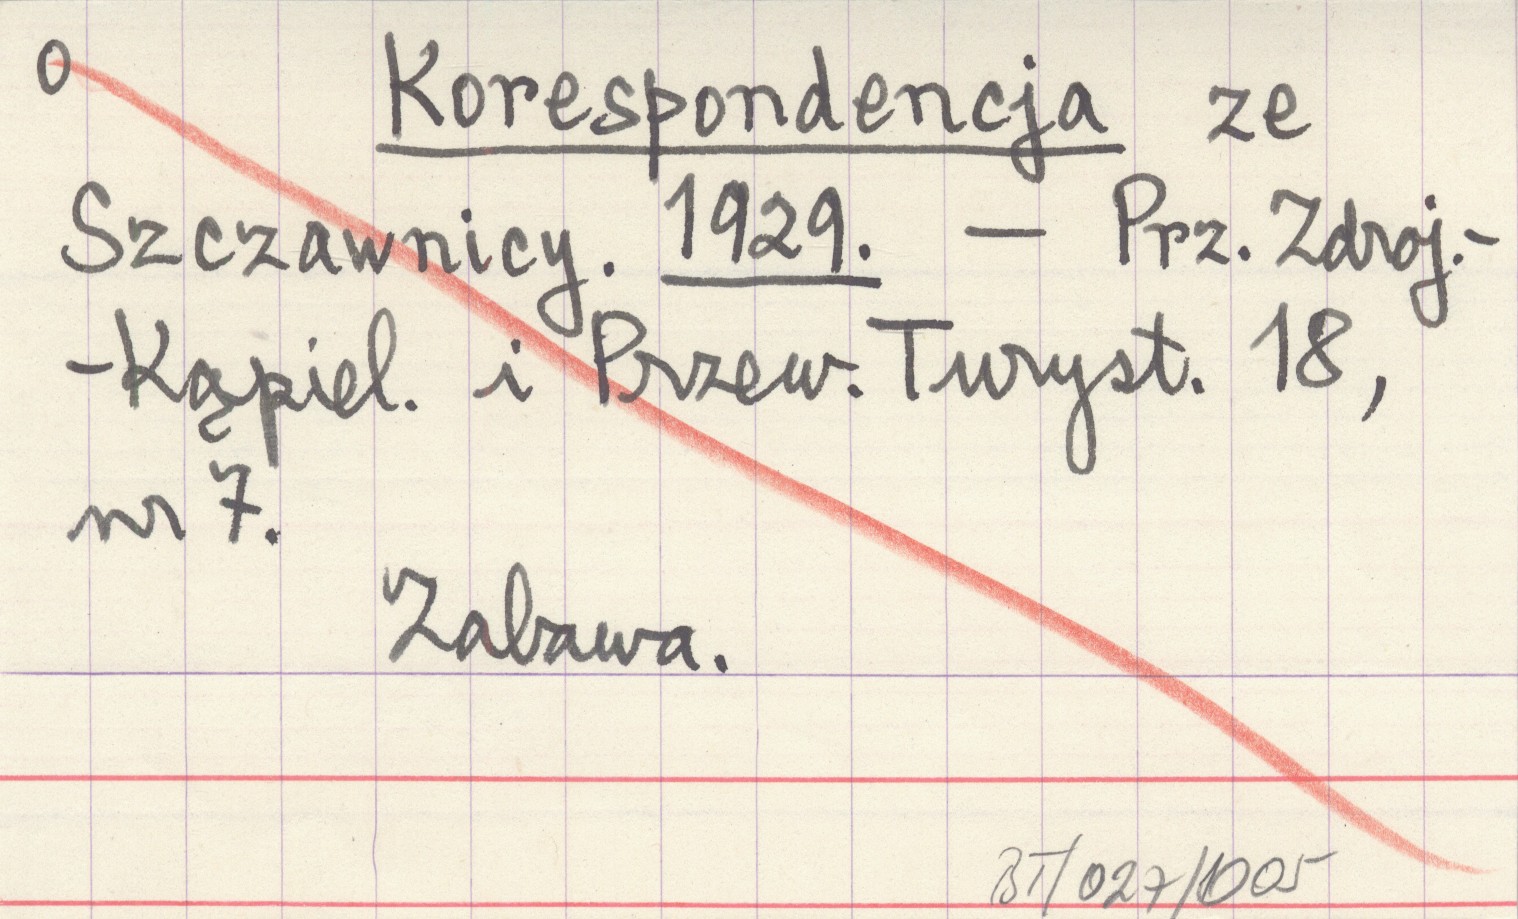 0 Korespondencja ze
Szczawnicy. 1929. — Prz. Zdroj.-
-Kąpiel. i Przew. Turyst. 18,
nr 7.
Zabawa.
BT/027/1005